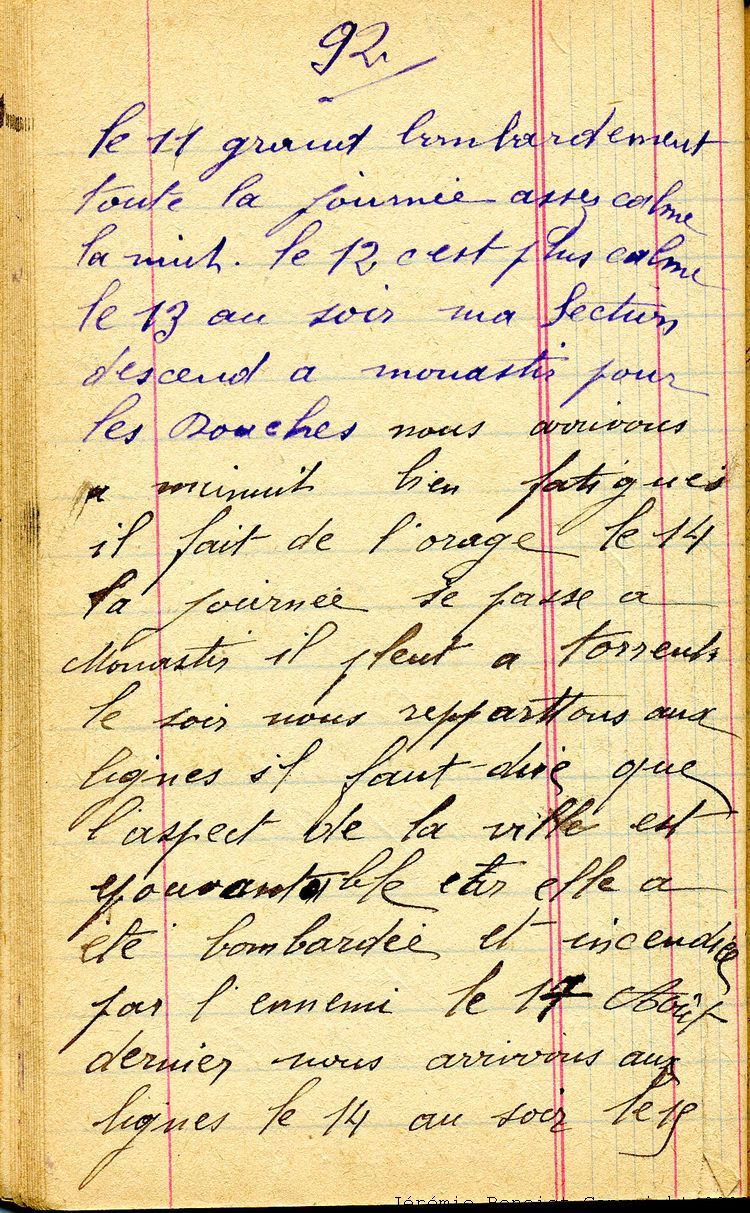 92
le 11 grand bombardement
toute la journée assez calme
la nuit. le 12 c'est plus calme
le 13 au soir ma section
descend a monastir pour
les Douches nous arrivons
a minuit bien fatigués
il fait de l'orage le 14
la journée se passe a
Monastir il pleut a torrents
le soir nous reppartons aux
lignes il faut dire que
l'aspect de la ville est
epouvantable car elle a
été bombardée et incendiée
par l'ennemi le 17 Août
dernier nous arrivons aux
lignes le 14 au soir le 15